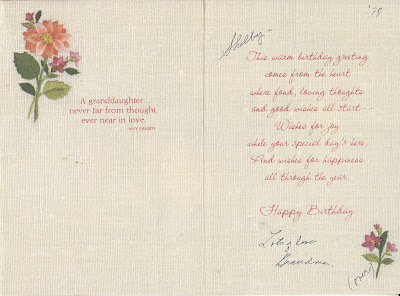 A granddaughter...
never far from thought,
ever near in love.
AMY CASSIDY
'78
Shelby-
This warm birthday greeting
comes from the heart
where fond, loving thoughts
and good wishes all start--
Wishes for joy
while your special day's here,
And wishes for happiness
all through the year.
Happy Birthday
Lots of love
Grandma.
(over)